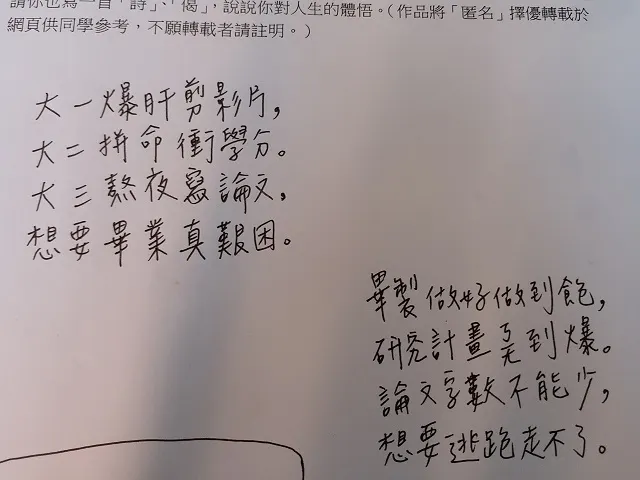 請你也寫一首「詩」、「偈」，說說你對人生的體悟。（作品將「匿名」擇優轉載於
網頁供同學參考，不願轉載者請註明。）
大一爆肝剪影片，
大二拼命衝學分。
大三熬夜寫論文，
想要畢業真艱困。
畢製做好做到飽，
研究計畫弄到爆。
論文字數不能少，
想要逃跑走不了。